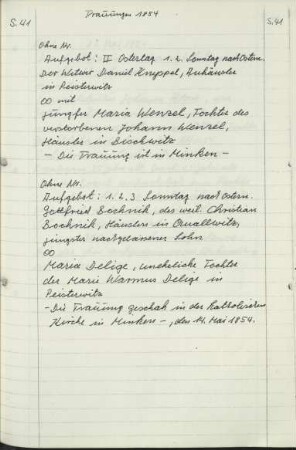 Trauungen 1854
S. 41
S. 41
Ohne Nr.
Aufgebot: II Ostertag 1. 2. Sonntag nach Ostern.
Der Witwer Daniel Knappel, Anhäusler
in Peisterwitz
∞ mit
Jungfer Maria Wenzel, Tochter des
verstorbenen Johann Wenzel,
Häusler in Bischwitz
- Die Trauung ist in Minken -
Ohne Nr.
Aufgebot: 1. 2. 3 Sonntag nach Ostern.
Gottfried Bochnik, des weil. Christian
Bochnik, Häuslers in Quallwitz,
jüngster nachgelassener Sohn
∞
Maria Delige, uneheliche Tochter
der Marie Delige in
Peisterwitz
- Die Trauung geschah in der katholischen
Kirche in Minken -, den 14. Mai 1854.